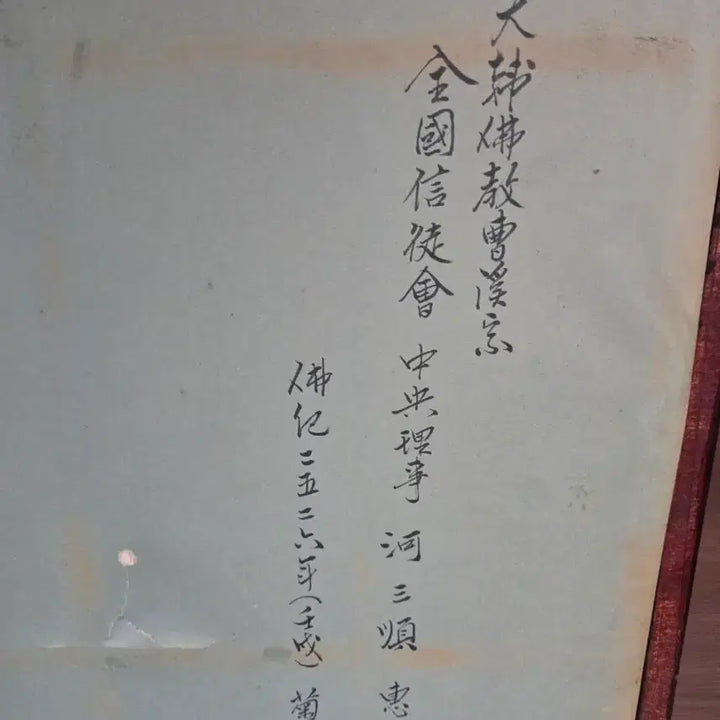 大韓佛教曹溪宗
全國信徒會 中央理事 河三順 惠
佛紀二五二六年(壬戌) 菊